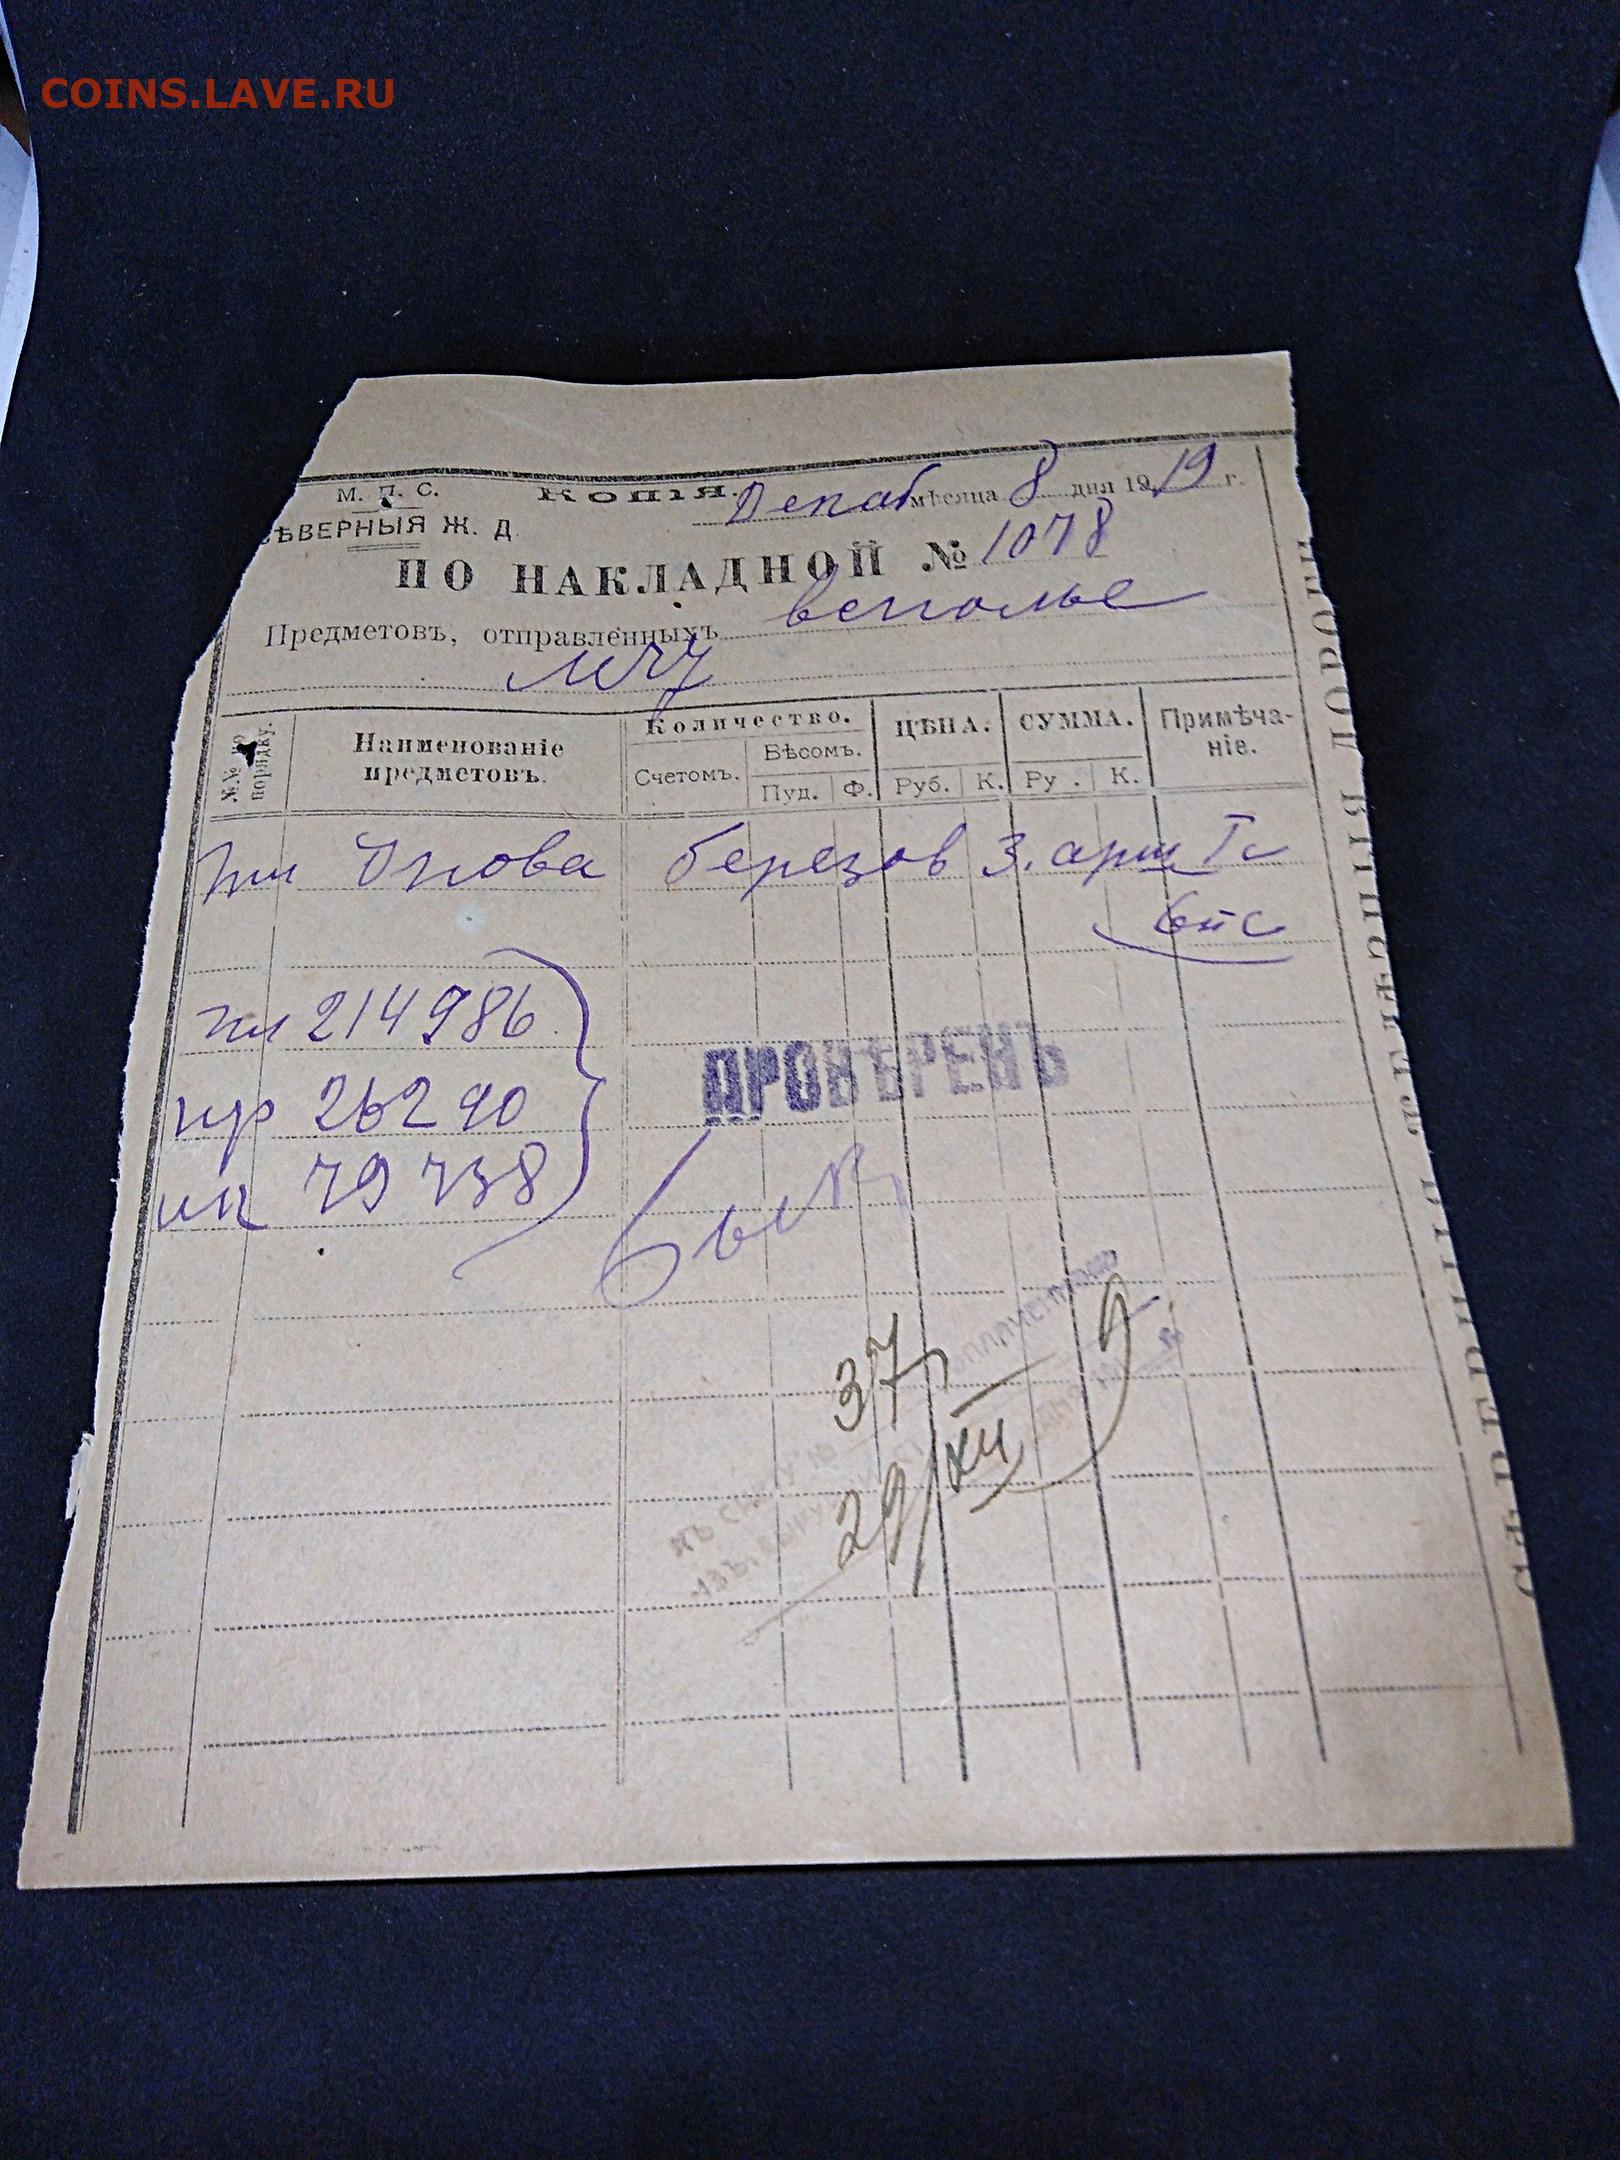 COINS.LAVE.RU
М. П. С. Копія. Декаб мѣсяца 8 дня 1919 г.
СѢВЕРНЫЯ Ж. Д.
ПО НАКЛАДНОЙ № 1078
Предметовъ, отправленныхъ Всполье
№№ по порядку.
Наименованіе предметовъ.
Количество.
Счетомъ.
Вѣсомъ.
Пуд. Ф.
ЦѢНА.
Руб. К.
СУММА.
Ру . К.
Примѣча-
ніе.
Дрова березов 3. арш
214986
пр 26290
79738
ПРОВѢРЕНЪ
37
29/XII 9
СѢВЕРНЫЯ ЖЕЛѢЗНЫЯ ДОРОГИ